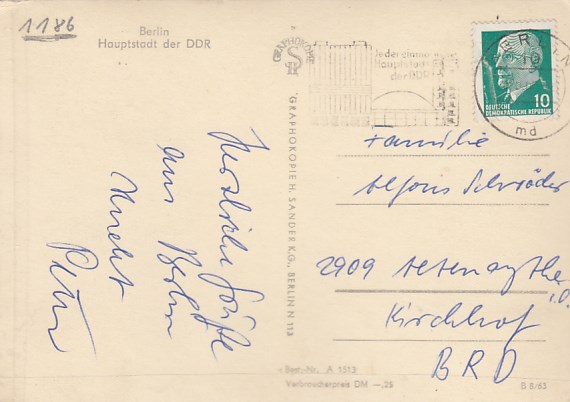 1186
Berlin
Hauptstadt der DDR
Herzliche Grüße
aus Berlin
Peter
GRAPHOKOPIE
GRAPHOKOPIE H. SANDER K.G., BERLIN N 113
Jeder einmal in
Hauptstadt
der DDR
BERLIN
md
10
DEUTSCHE
DEMOKRATISCHE REPUBLIK
Familie
Alfons Schröder
2909
Kirchhof
BRD
Best.-Nr. A 1513
Verbraucherpreis DM —,25
B 8/63